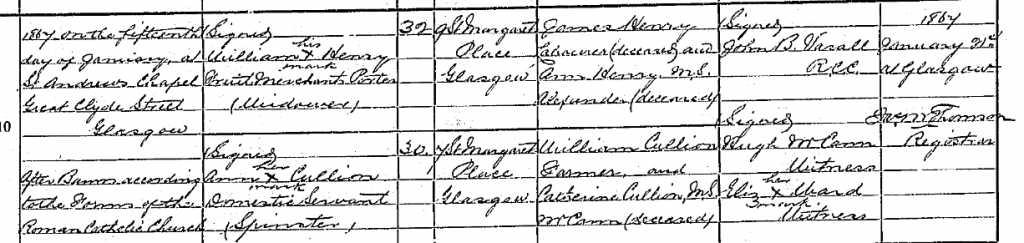 1867 on the fifteenth
day of January, at
St Andrew's Chapel
Great Clyde Street
Glasgow
After Banns according
to the Forms of the
Roman Catholic Church
(Signed)
William his x mark Henry
Fruit Merchants Porter
(Widower)
(Signed)
Ann her x mark Cullion
Domestic Servant
(Spinster)
32
30
9 St Margaret
Place
Glasgow
St Margaret
Place
Glasgow
James Henry
Labourer (deceased) and
Ann Henry, M.S.
Alexander (deceased)
William Cullion
Farmer, and
Catherine Cullion, M.S.
McCann (deceased)
(Signed)
John B. Vasall
R.C.C.
(Signed)
Hugh McCann
Witness
Eliz her x mark Ward
Witness
1867
January 21st
At Glasgow
Thomson
Registrar
10